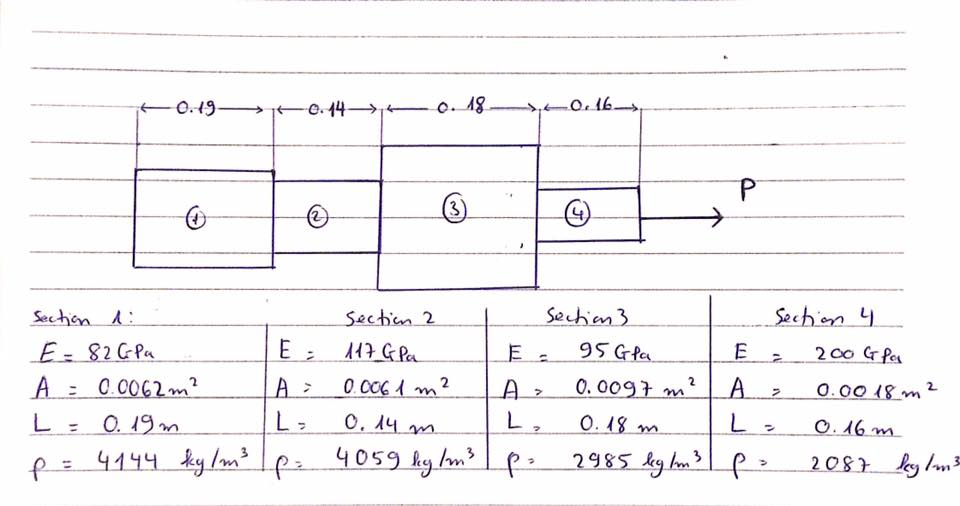 0.19 0.14 0.18 0.16
P
1 2 3 4
Section 1: Section 2 Section 3 Section 4
E = 82 GPa E = 117 GPa E = 95 GPa E = 200 GPa
A = 0.0062 m² A = 0.0061 m² A = 0.0097 m² A = 0.0018 m²
L = 0.19 m L = 0.14 m L = 0.18 m L = 0.16 m
ρ = 4144 kg/m³ ρ = 4059 kg/m³ ρ = 2985 kg/m³ ρ = 2087 kg/m³